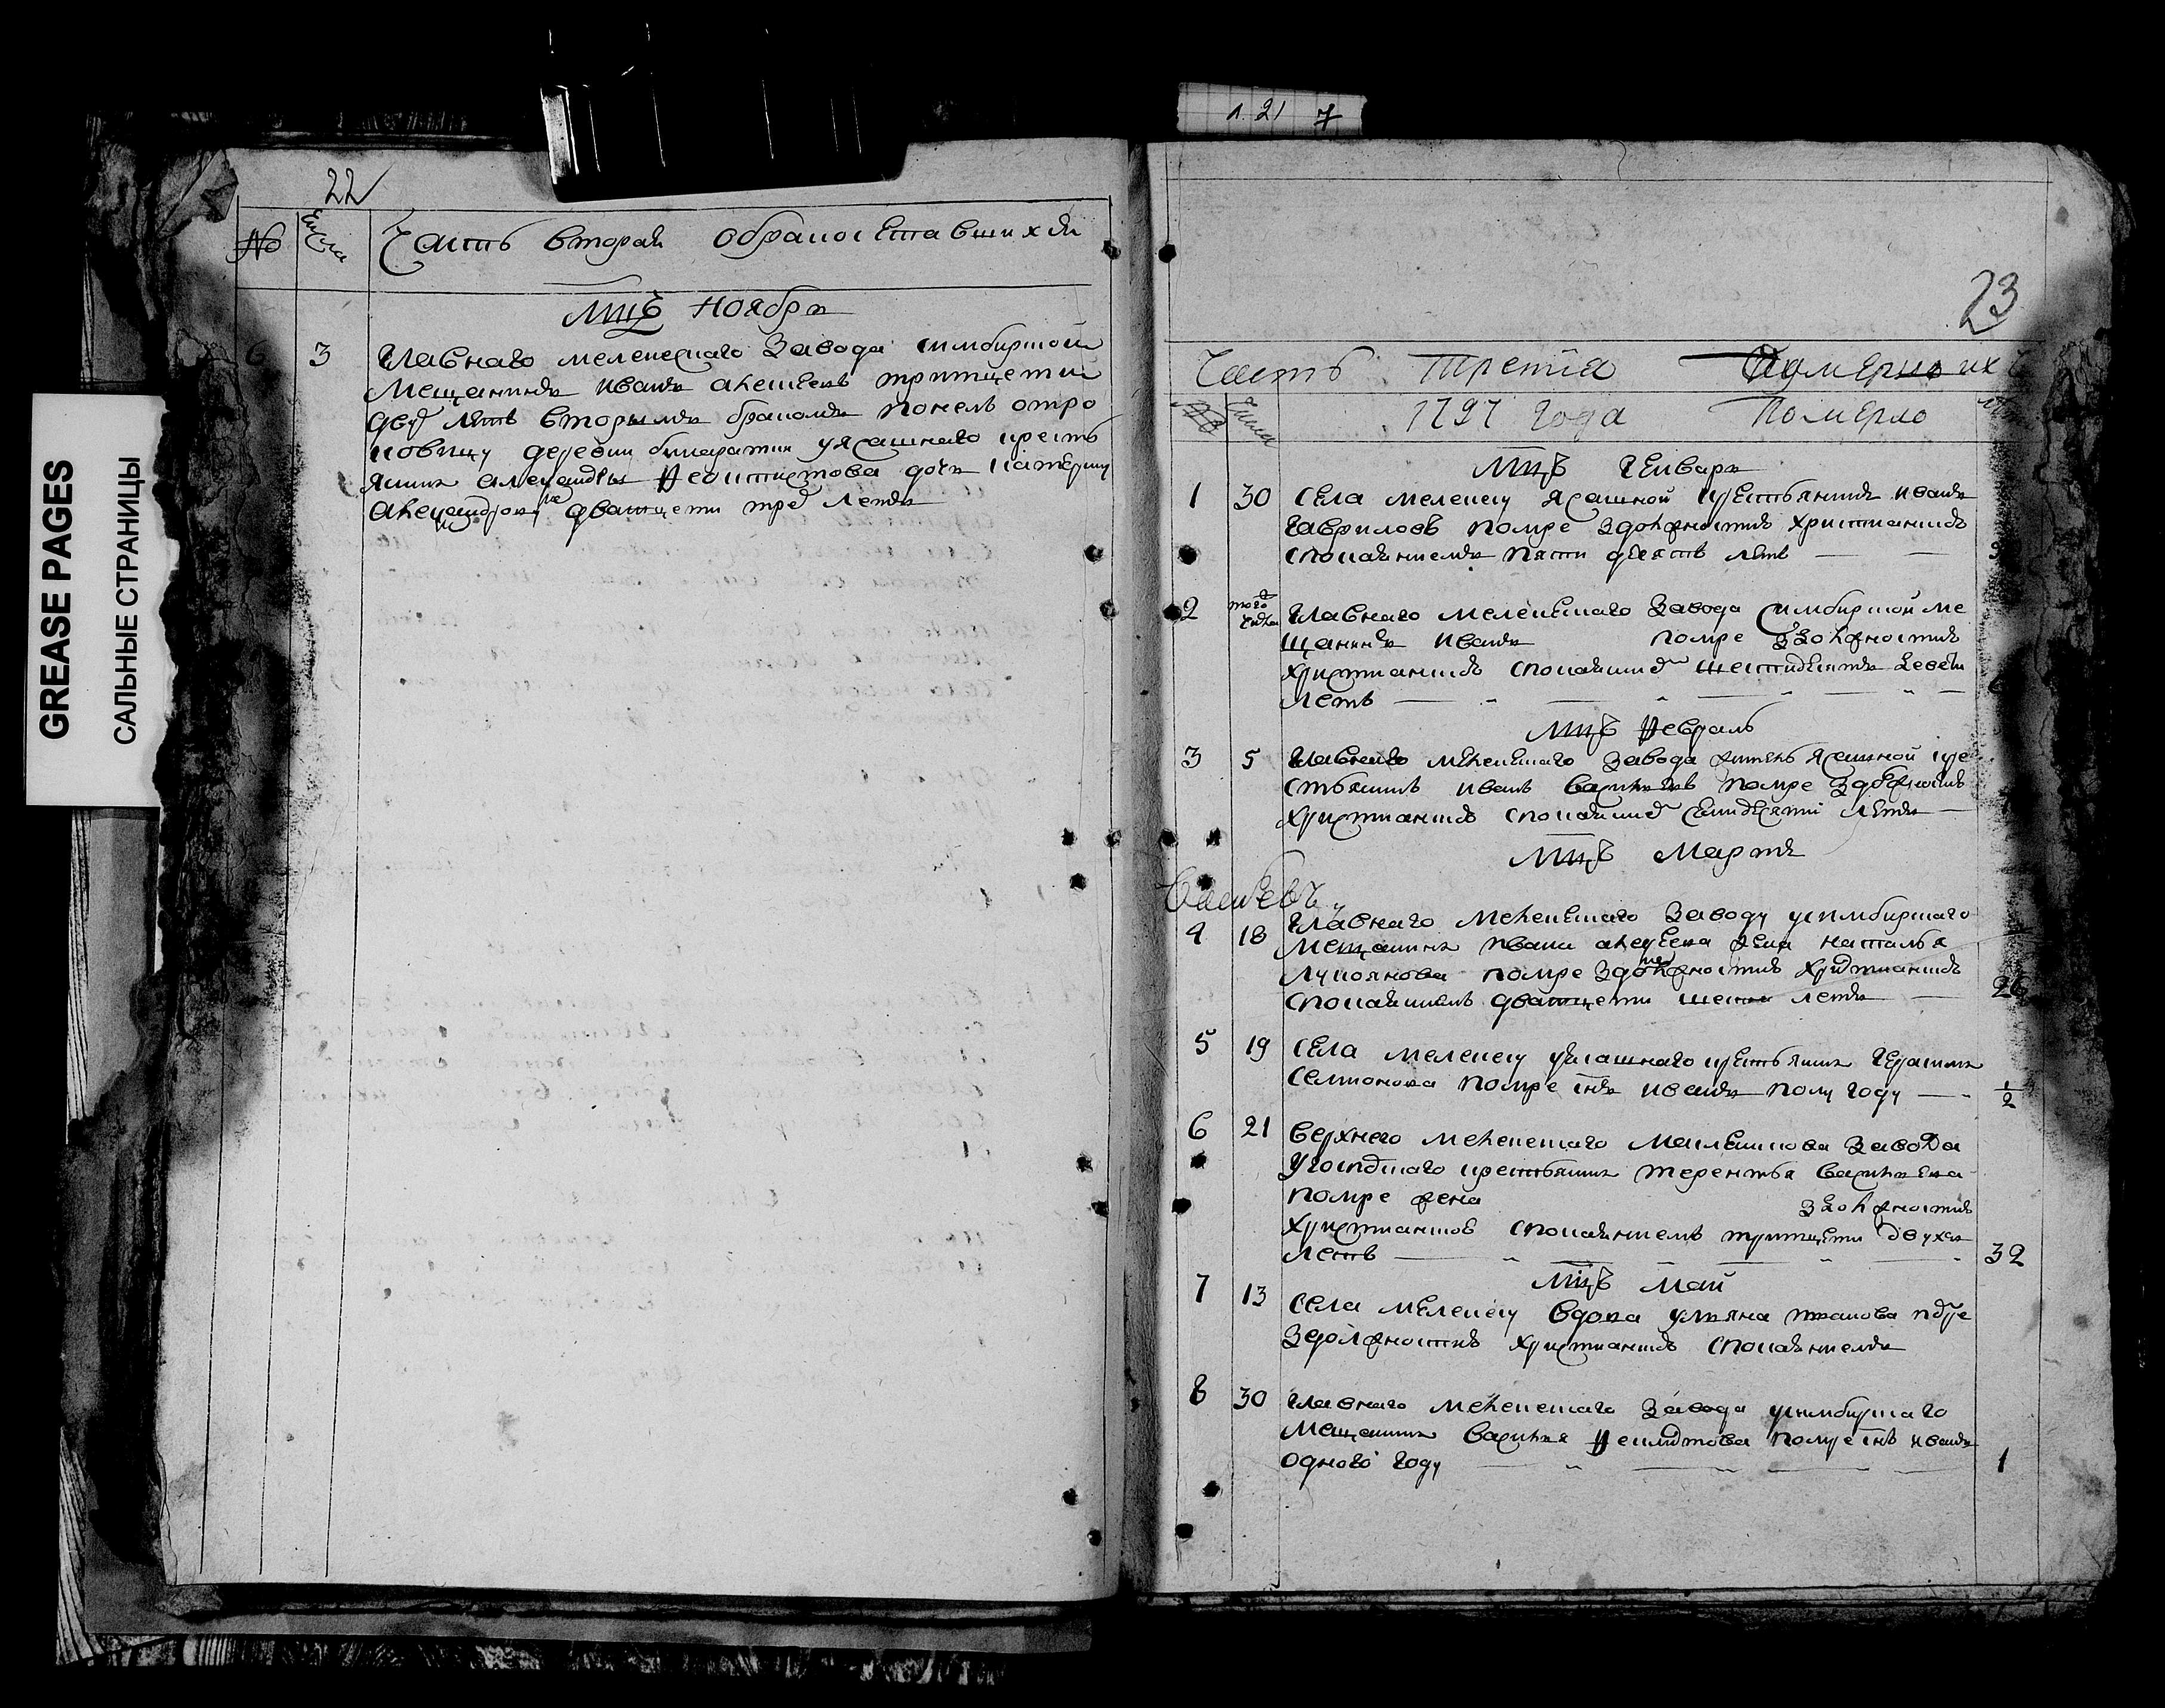 GREASE PAGES
САЛЬНЫЕ СТРАНИЦЫ
22
№ Числа Часть вторая о бракосочетавшихся
Мцъ Ноября
6 3 Главнаго мелекескаго завода симбирской
мещанинъ Иванъ Алексеевъ тритцети
двухъ летъ вторымъ бракомъ понелъ отро
ковицу деревни ясашнаго кресть
янина Александры Феоктистова дочь Катерину
Александрову дватцети трехъ летъ
л. 21 7
23
Часть третiа Померших
1797 года Померло
Мцъ Генваря
1 30 Села мелекесу ясашной крестьянинъ Иванъ
Гавриловъ помре здолжностию христианскою
спокаяниемъ пяти десять летъ
2 того числа Главнаго мелекескаго завода симбирской ме
щанинъ Иванъ помре здолжностию
христианскою спокаяние шестидесяти девети
летъ
Мцъ Февраль
3 5 Главнаго мелекескаго завода житель ясашной кре
стьянинъ Иванъ Васильевъ помре здолжностию
християнскою спокаяние семидесяти летъ
Мцъ Мартъ
4 18 Главнаго мелекескаго заводу у симбирскаго
мещанина Ивана Алексеева жена Наталья
Лукоянова помре здолжностию християнскою
спокаяниемъ дватцети шести летъ 26
5 19 Села мелекесу у ясашнаго крестьянина Герасима
Семионова помре снъ Иванъ полу году 1/2
6 21 Верхнего мелекескаго завода
крестьянина Терентья Васильева
помре жена здолжностию
християнскою спокаяниемъ тритцети двухъ
летъ 32
Мцъ Май
7 13 Села мелекесу вдова Ульяна помре
здолжностию християнскою спокаяниемъ
8 30 Главнаго мелекескаго завода у симбирскаго
мещанина Василья Феоктистова помре снъ Иванъ
одного году 1